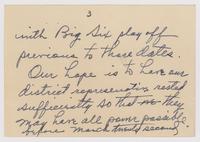 3
with Big Six play off
previous to those dates.
Our hope is to have our
district representative rested
sufficiently so that they
may have all power possible
before March twenty second.